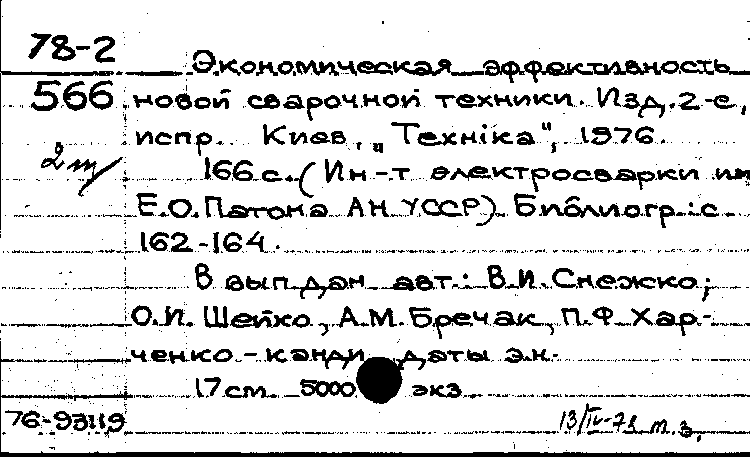 78-2
Экономическая эффективность
566 новой сварочной техники. Изд. 2-е,
испр. Киев, „Технiка", 1976.
2 т/
166 с. (Ин-т электросварки им
Е.О.Патона АН УССР). Библиогр.: с.
162-164.
В вып.дан. авт.: В.И. Снежко;
О.И. Шейко, А.М. Бречак, П.Ф. Хар-
ченко - канди даты э.н.
17 см. 5000 экз
76-93119
13/IV-78 т.з.